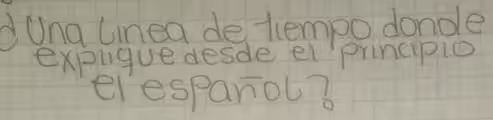 d Una Linea de tiempo donde
explique desde el principio
el español?